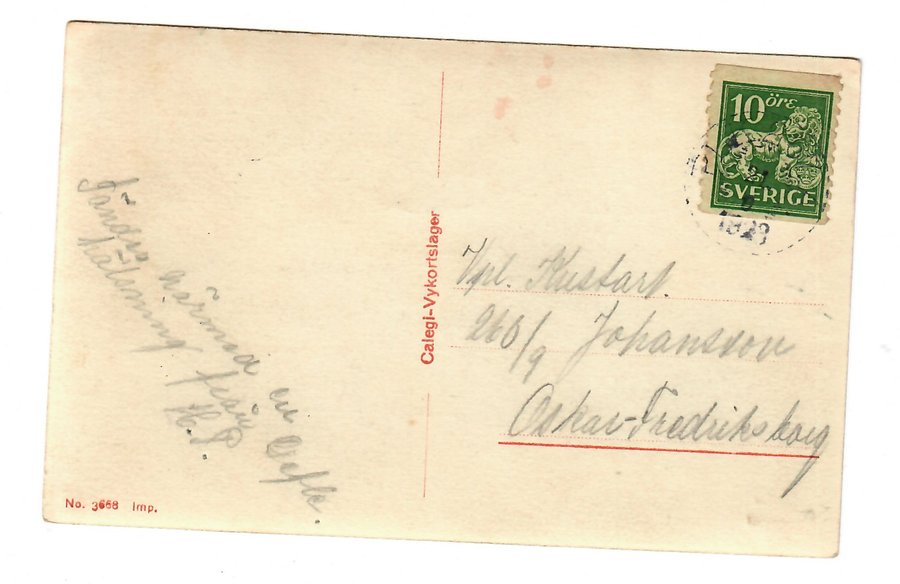 Sändes härmed en
hälsning från
H. P.
Calegi-Vykortslager
No. 3668 Imp.
10 öre
SVERIGE
1923
Vpl. Kustart.
260/9 Johansson
Oskar-Fredriksborg